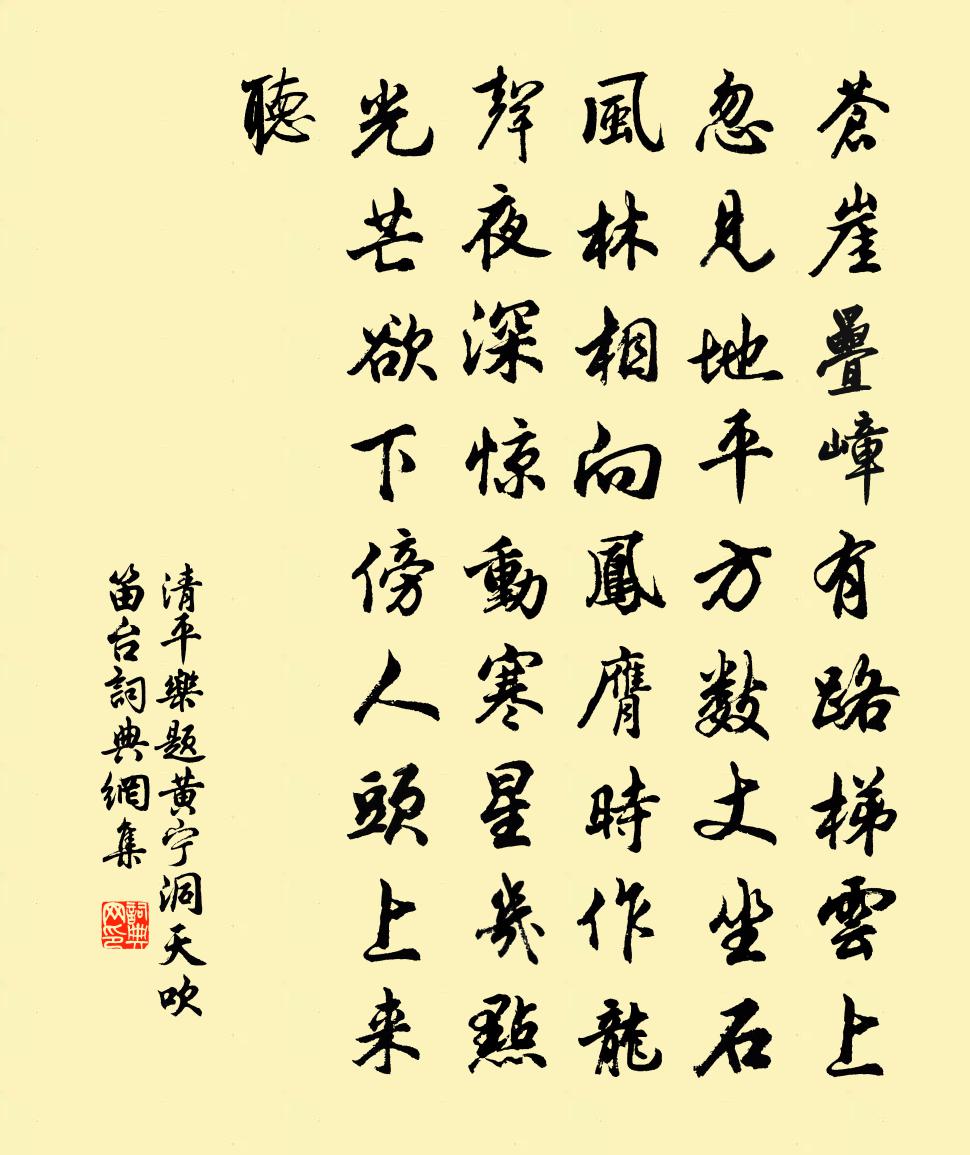 蒼崖疊嶂有路梯雲上
忽見地平方數丈坐石
風林相向鳳膺時作龍
聲夜深惊動寒星幾點
光芒欲下傍人頭上来
聽
清平樂题黄宁洞天吹
笛台詞典網集
詞典网印